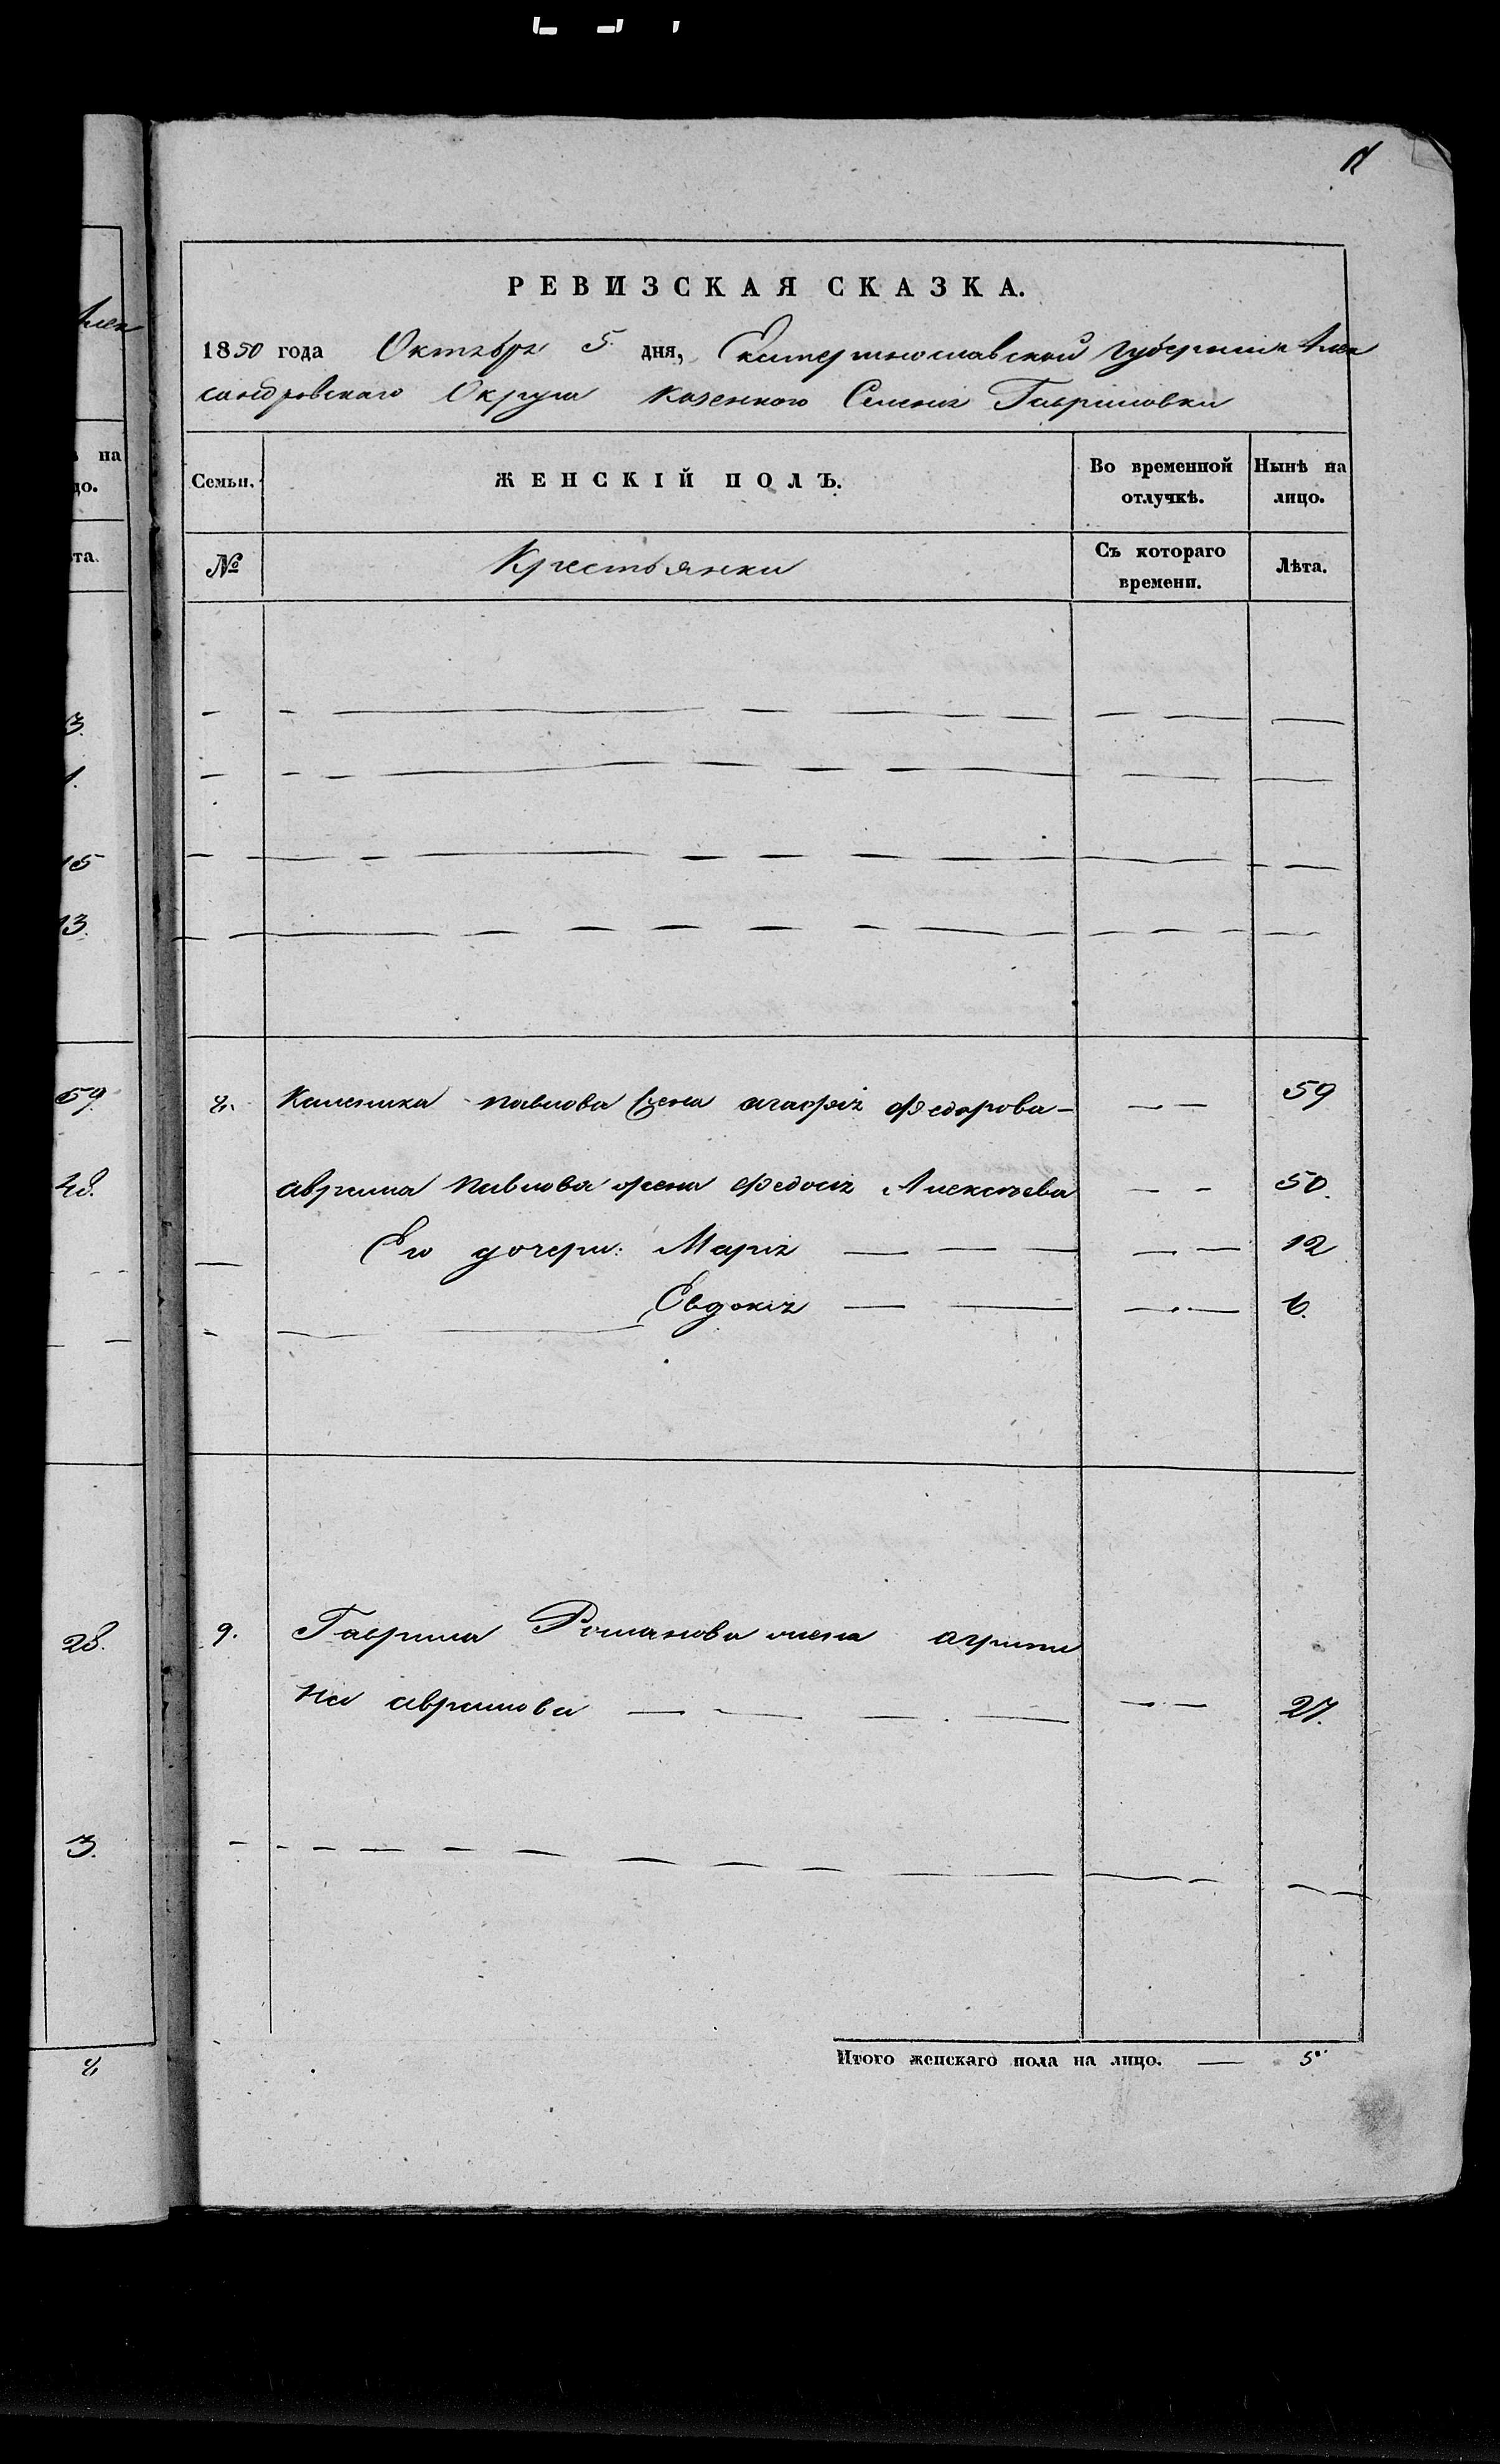 РЕВИЗСКАЯ СКАЗКА.
1850 года Октября 5 дня, Екатеринославской губернии Алек
сандровскаго Округа казенного Селения Гавриловки
Семьи. ЖЕНСКІЙ ПОЛЪ. Во временной отлучкѣ. Нынѣ на лицо.
№ Крестьянки Съ котораго времени. Лѣта.
8. Павлова жена агафия Федорова 59
аврама Павлова жена Федосия Алексеева 50.
Его дочери: Мария 12
Евдокия 6.
9. Гаврила Романова жена агрипи
на аврамова 27.
Итого женскаго пола на лицо. 5.
на
та.
3.
1.
15
13.
59.
48.
28.
3.
8